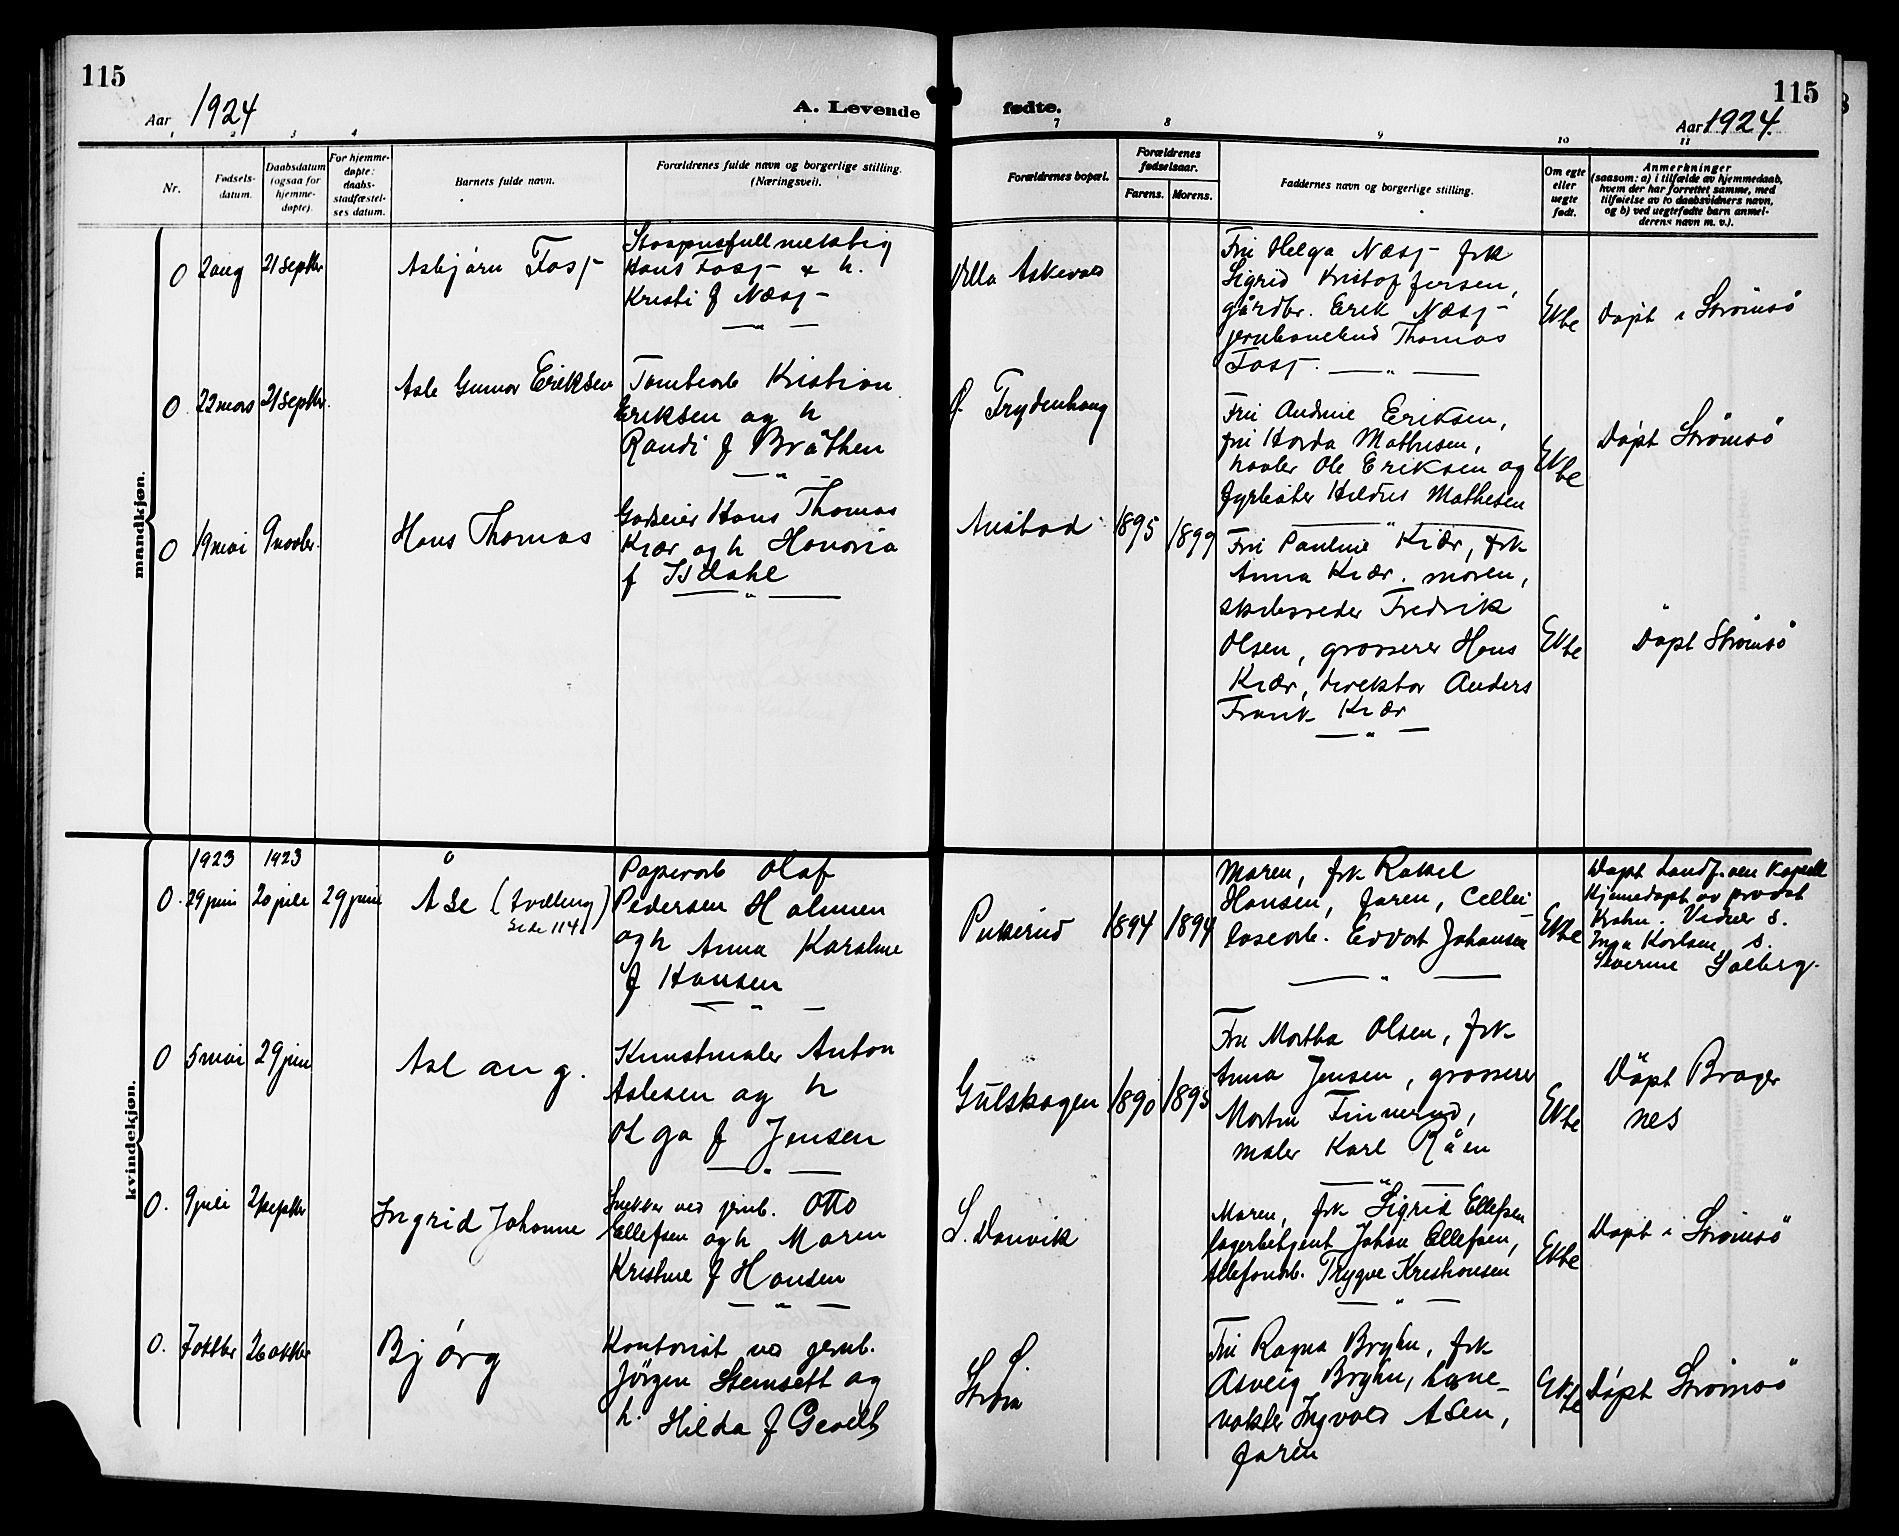 115
Aar 1924
A. Levende
fødte.
115
Aar 1924
1 2 3 4
7 8 9 10 11
Nr.
Fødsels-
datum.
Daabsdatum
(ogsaa for
hjemme-
døpte).
For hjemme-
døpte:
daabs-
stadfæstel-
ses datum.
Barnets fulde navn.
Forældrenes fulde navn og borgerlige stilling.
(Næringsvei).
Forældrenes bopæl.
Forældrenes
fødselsaar.
Farens. Morens.
Faddernes navn og borgerlige stilling.
Om egte
eller
uegte
født.
Anmerkninger
(saasom: a) i tilfælde av hjemmedaab,
hvem der har forrettet samme, med
tilføielse av to daabsvidners navn,
og b) ved uegtefødte barn anmel-
derens navn m. v.).
mandkjøn.
0 2 aug 21 septbr
Asbjørn Foss
Hans Foss & h.
Kristi f Næss
Villa Askevold
Fru Helga Næss frk
Sigrid Kristoffersen,
gårdbr. Erik Næss
Thomas
Foss.
Ekte
Døpt i Strømsö
0 22 mars 21 septbr.
Asle Gunnar Eriksen
Tomtearb Kristian
Eriksen og h
Randi f Bråthen
Ø. Frydenhaug
Fru Andrine Eriksen,
fru Mathisen,
Ole Eriksen og
fyrbøter Mathisen
Ekte
Døpt Strømsö
0 19 mai 9 novbr.
Hans Thomas
Godseier Hans Thomas
Kiær og h Honoria
f Isdahl
Austad
1895 1899
Fru Pauline Kiær, frk
Anna Kiær. moren,
skibsreder Fredrik
Olsen, grosserer Hans
Kiær, direktør Anders
Frank Kiær
Ekte
Døpt Strømsö
kvindekjøn.
1923 1923
0. 29 juni 20 juli 29 juni
Ase (tvilling)
Side 114
Papirarb Olaf
Pedersen Holmen
og h Anna Karoline
f Hansen
Pukerud
1894 1894
Moren, frk Rakel
Hansen, faren, Cellu-
losearb. Edvart Johansen
Ekte
Døpt Landf. aen Kapell
Hjemmedøpt av prodat
Krohn. Vidner s.
Inga Karlsen, s.
Severine Solberg.
0 5 mai 29 juni
Aslaug.
Kunstmaler Anton
Aslesen og h
Olga f Jensen
Gulskogen
1890 1893
Fru Martha Olsen, frk
Anna Jensen, grosserer
Morten Finnerud,
maler Karl Råen
Ekte
Döpt Brager
nes
0. 9 juli 21 septbr
Ingrid Johanne
Snekker ved jernb. Otto
Ellefsen og h Maren
Kristine f Hansen
S. Danvik
Moren, frk Sigrid Ellefsen
lagerbetjent Johan Ellefsen,
telefonarb. Trygve Kristiansen
Ekte
Døpt i Strømsö
0. 7 oktbr 26 oktbr
Bjørg
Kontorist ved jernb.
Jörgen Stemsett og
h. Hilda f Gevelt
Ø.
Strøm
Fru Ragna Bryhn, frk
Asveig Bryhn, bane-
vokter Ingvald Åsen,
faren
Ekte
Døpt Strømsö